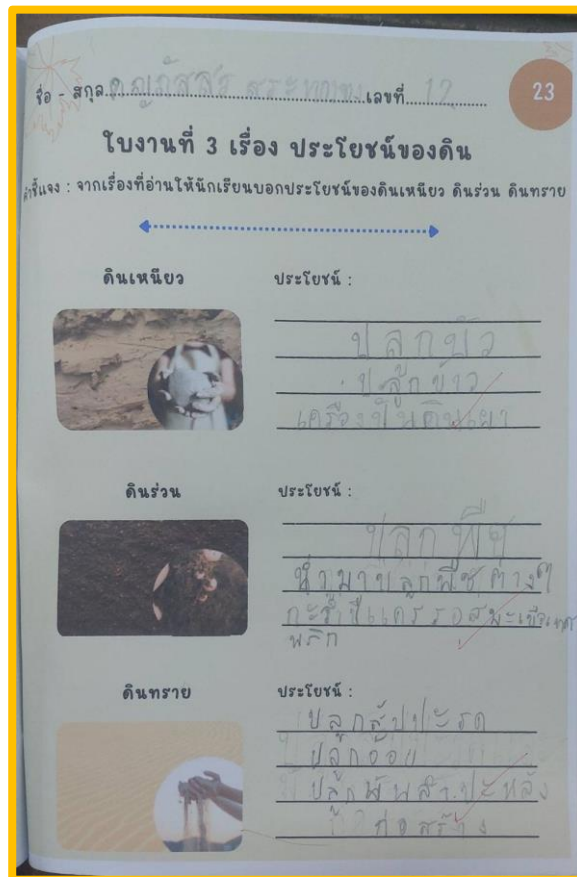 23
ชื่อ - สกุล เลขที่ 12
ใบงานที่ 3 เรื่อง ประโยชน์ของดิน
คำชี้แจง : จากเรื่องที่อ่านให้นักเรียนบอกประโยชน์ของดินเหนียว ดินร่วน ดินทราย
ดินเหนียว
ประโยชน์ :
ปลูกบัว
ปลูกข้าว
เครื่องปั้นดินเผา
ดินร่วน
ประโยชน์ :
ปลูกพืช
นำมาปลูกพืชต่างๆ
แครรอสมะเขือเทศ
พริก
ดินทราย
ประโยชน์ :
ปลูกสับปะรด
ปลูกอ้อย
ปลูกมันสำปะหลัง
ก่อสร้าง